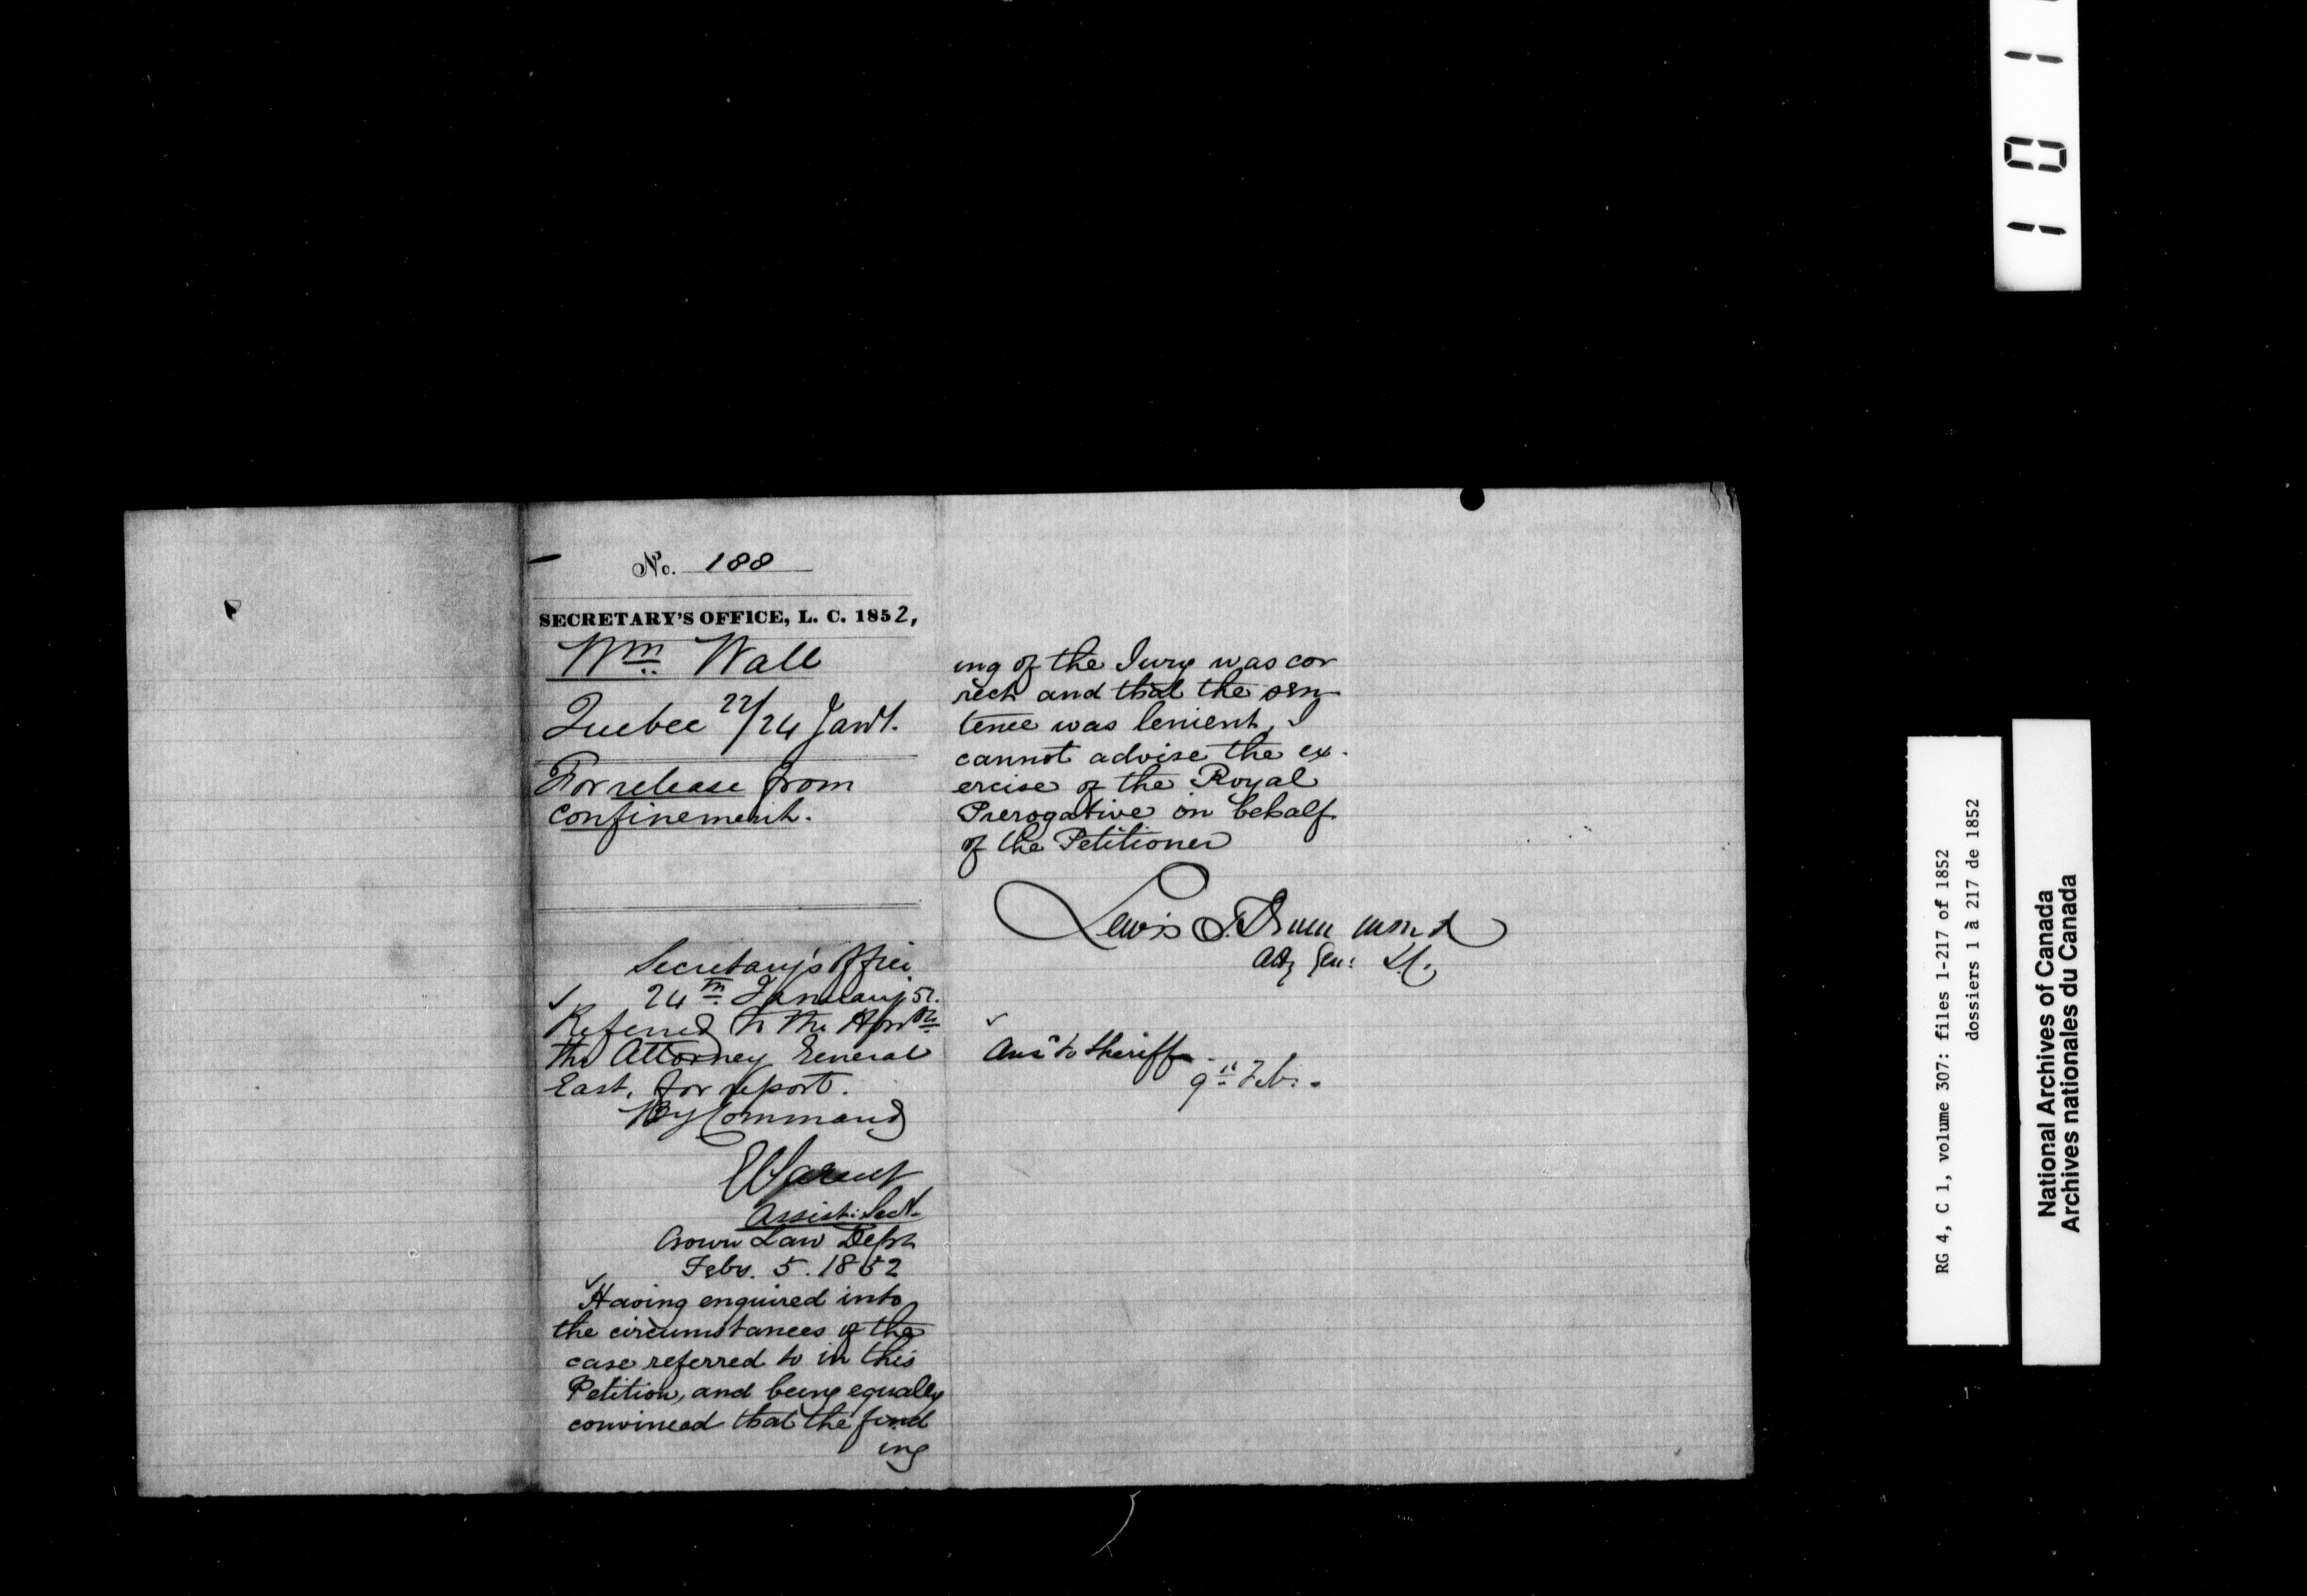 No. 188
SECRETARY'S OFFICE, L. C. 1852,
Wm Wall
Quebec 22/24 Jany.
For release from
confinement.
Secretary's Office
24th January 52.
Referred to the Honble
the Attorney General
East, for report.
By Command
E Parent
Assist: Secy.
Crown Law Dept
Feby. 5. 1852
Having enquired into
the circumstances of the
case referred to in this
Petition, and being equally
convinced that the find
ing
ing of the Jury was cor
rect and that the sen
tence was lenient, I
cannot advise the ex-
ercise of the Royal
Prerogative on behalf
of the Petitioner
Lewis T. Drummond
Atty Gen: L.C.
Ansd to Sheriff
9th Feb.
1 0 1
RG 4, C 1, volume 307: files 1-217 of 1852
dossiers 1 à 217 de 1852
National Archives of Canada
Archives nationales du Canada